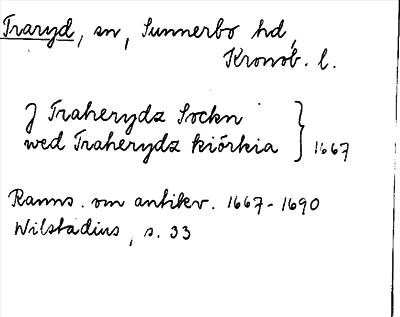 Traryd, sn, Sunnerbo hd,
Kronob. l.
J Traherydz Sockn
wed Traherydz kiörkia } 1667
Ranns. om antikv. 1667-1690
Wilstadius, s. 33